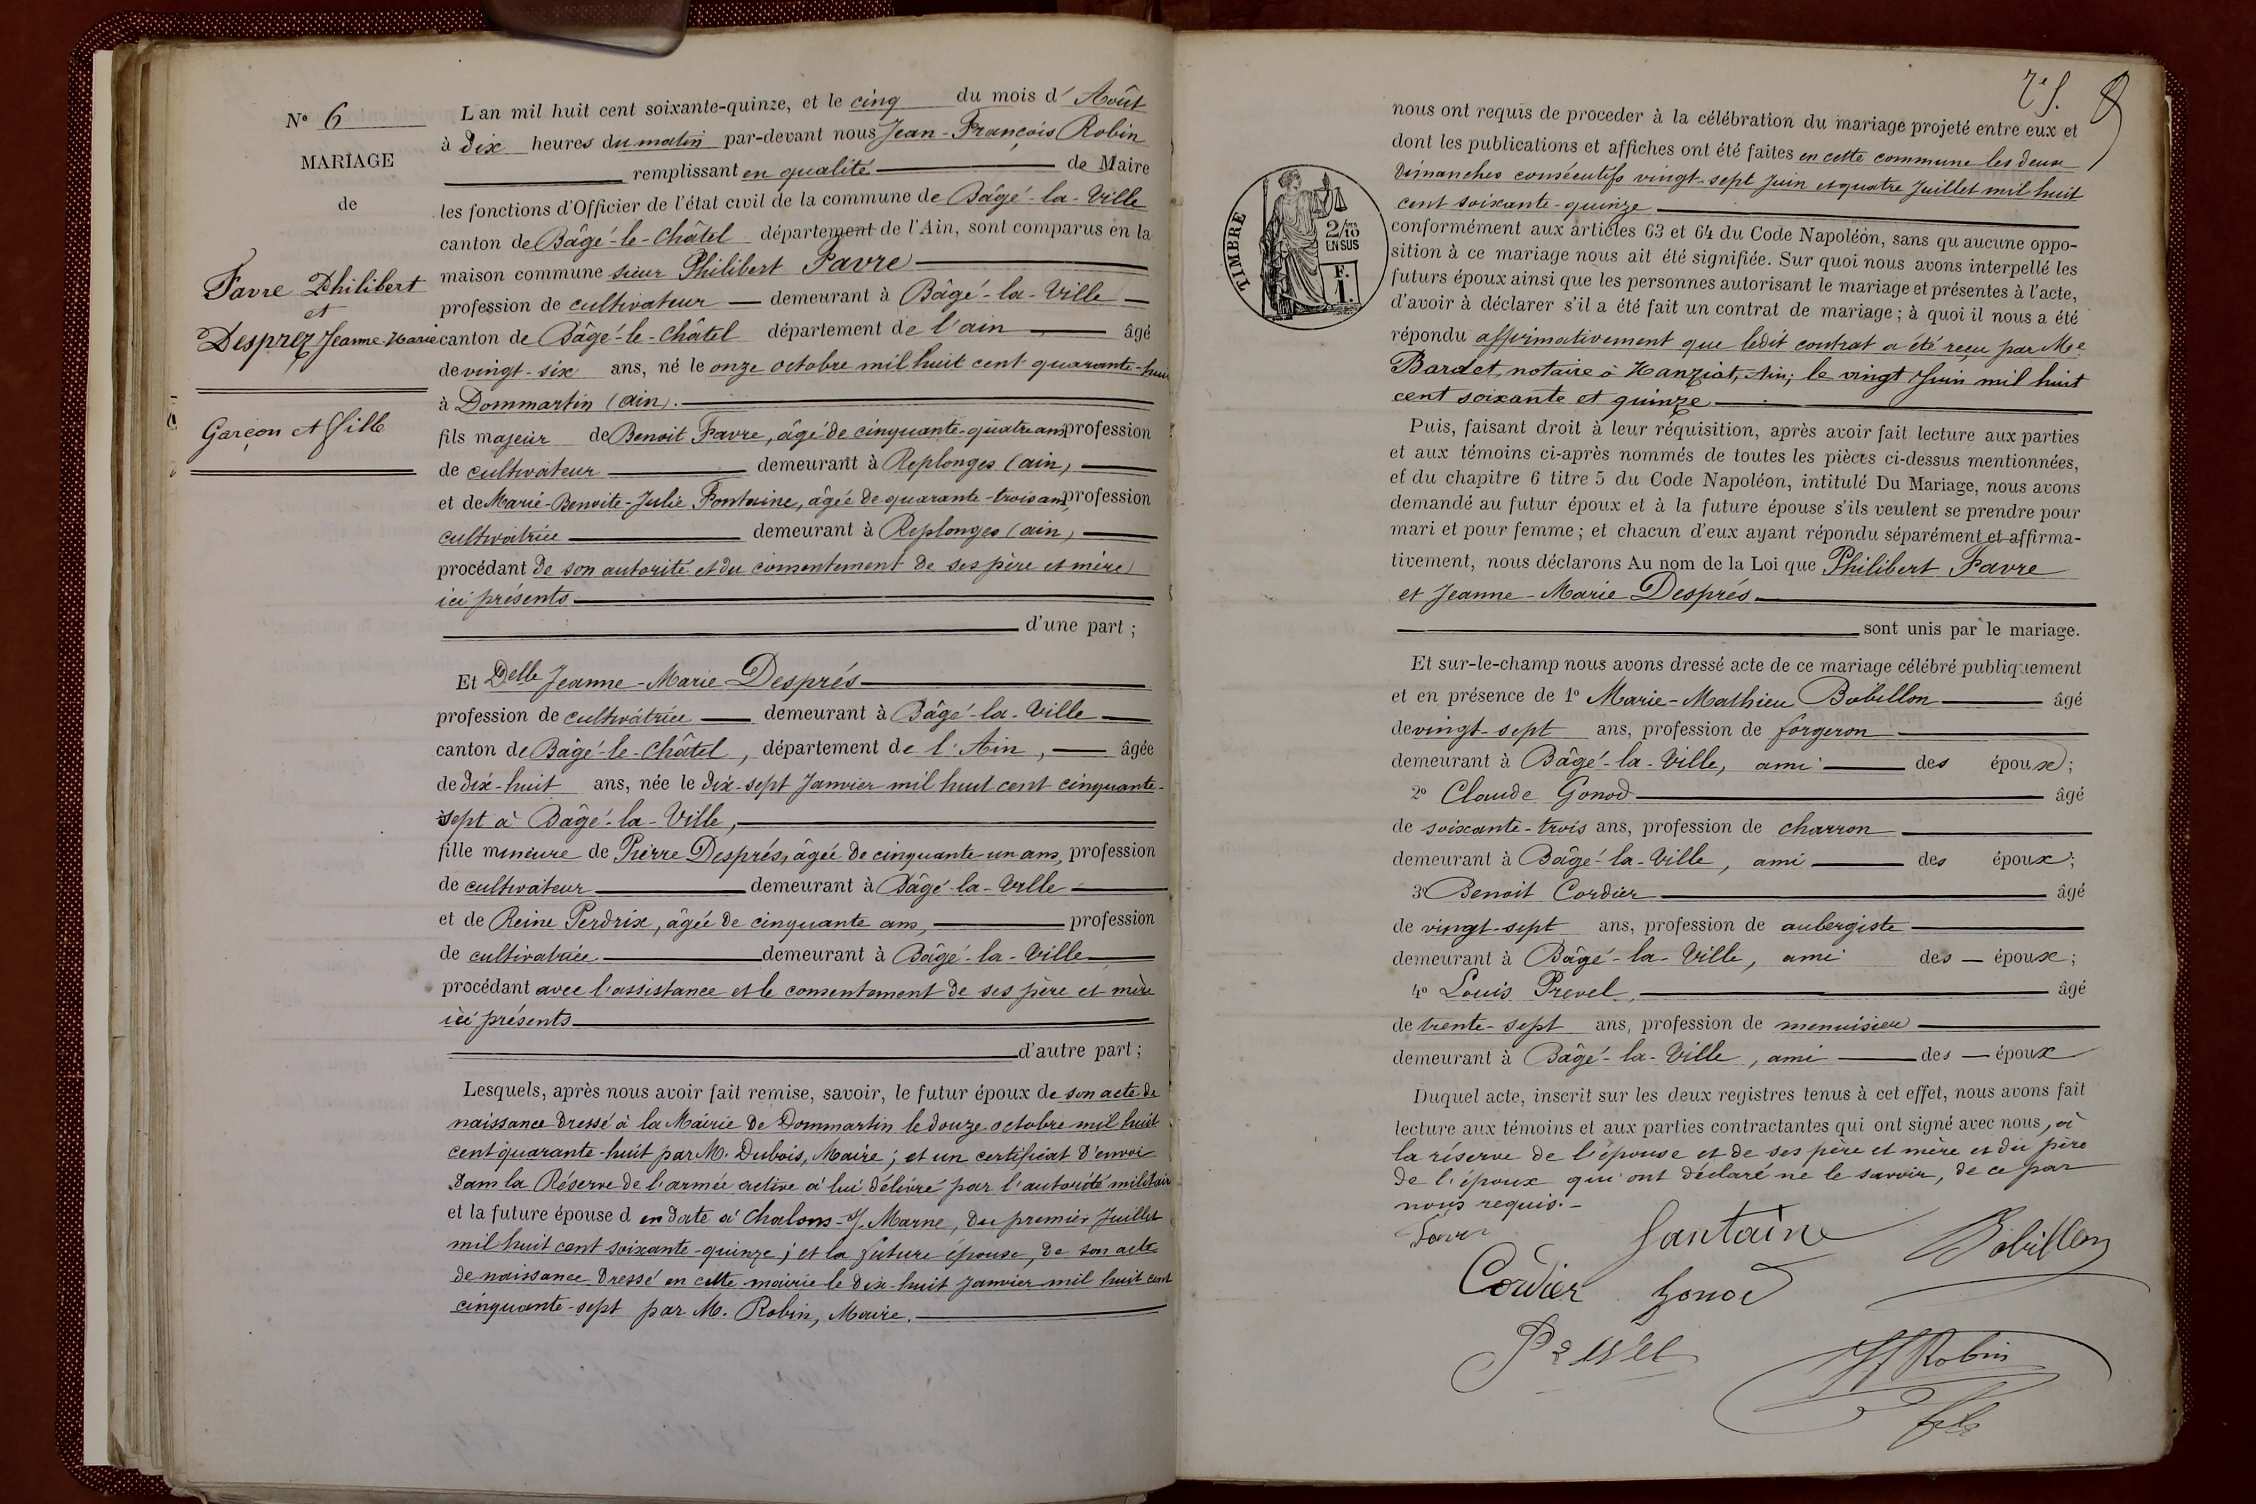 N° 6
MARIAGE
de
Favre Philibert
et
Desprez Jeanne-Marie
Garçon et fille
L'an mil huit cent soixante-quinze, et le cinq du mois d' Août
à Dix heures du matin par-devant nous Jean-François Robin
remplissant en qualité de Maire
les fonctions d'Officier de l'état civil de la commune de Bâgé-la-Ville
canton de Bâgé-le-Châtel département de l'Ain, sont comparus en la
maison commune sieur Philibert Favre
profession de cultivateur demeurant à Bâgé-la-Ville
canton de Bâgé-le-Châtel département de l'ain âgé
de vingt-six ans, né le onze octobre mil huit cent quarante-huit
à Dommartin (ain).
fils majeur de Benoit Favre, âgé de cinquante-quatre ans profession
de cultivateur demeurant à Replonges (ain)
et de Marie-Benoite-Julie Fontaine, âgée de quarante-trois ans, profession
cultivatrice demeurant à Replonges (ain)
procédant de son autorité et du consentement de ses père et mère
ici présents
d'une part ;
Et Delle Jeanne-Marie Després
profession de cultivatrice demeurant à Bâgé-la-Ville
canton de Bâgé-le-Châtel, département de l'Ain, âgée
de dix-huit ans, née le dix-sept Janvier mil huit cent cinquante-
sept à Bâgé-la-Ville,
fille mineure de Pierre Després, âgée de cinquante-un ans, profession
de cultivateur demeurant à Bâgé-la-Ville
et de Reine Perdrix, âgée de cinquante ans, profession
de cultivatrice demeurant à Bâgé-la-Ville
procédant avec l'assistance et le consentement de ses père et mère
ici présents
d'autre part ;
Lesquels, après nous avoir fait remise, savoir, le futur époux de son acte de
naissance dressé à la Mairie de Dommartin le douze octobre mil huit
cent quarante-huit par M. Dubois, Maire ; et un certificat d'envoi
dans la Réserve de l'armée active à lui délivré par l'autorité militaire
et la future épouse d en date à Chalons-s/ Marne, du premier Juillet
mil huit cent soixante-quinze ; et la future épouse, de son acte
de naissance dressé en cette mairie le dix-huit Janvier mil huit cent
cinquante-sept par M. Robin, Maire.
7e f. 8
nous ont requis de proceder à la célébration du mariage projeté entre eux et
dont les publications et affiches ont été faites en cette commune les deux
Dimanches consécutifs vingt-sept Juin et quatre Juillet mil huit
cent soixante-quinze
TIMBRE
2/10
EN SUS
F.
I.
conformément aux articles 63 et 64 du Code Napoléon, sans qu'aucune oppo-
sition à ce mariage nous ait été signifiée. Sur quoi nous avons interpellé les
futurs époux ainsi que les personnes autorisant le mariage et présentes à l'acte,
d'avoir à déclarer s'il a été fait un contrat de mariage ; à quoi il nous a été
répondu affirmativement que ledit contrat a été reçu par Me
Bardet, notaire à Manziat, Ain, le vingt Juin mil huit
cent soixante et quinze
Puis, faisant droit à leur réquisition, après avoir fait lecture aux parties
et aux témoins ci-après nommés de toutes les pièces ci-dessus mentionnées,
et du chapitre 6 titre 5 du Code Napoléon, intitulé Du Mariage, nous avons
demandé au futur époux et à la future épouse s'ils veulent se prendre pour
mari et pour femme ; et chacun d'eux ayant répondu séparément et affirma-
tivement, nous déclarons Au nom de la Loi que Philibert Favre
et Jeanne-Marie Després
sont unis par le mariage.
Et sur-le-champ nous avons dressé acte de ce mariage célébré publiquement
et en présence de 1° Marie-Mathieu Bobillon âgé
de vingt-sept ans, profession de forgeron
demeurant à Bâgé-la-Ville, ami des époux ;
2° Claude Gonod âgé
de soixante-trois ans, profession de charron
demeurant à Bâgé-la-Ville, ami des époux ;
3° Benoit Cordier âgé
de vingt-sept ans, profession de aubergiste
demeurant à Bâgé-la-Ville, ami des époux ;
4° Louis Prevel âgé
de trente-sept ans, profession de menuisier
demeurant à Bâgé-la-Ville, ami des époux
Duquel acte, inscrit sur les deux registres tenus à cet effet, nous avons fait
lecture aux témoins et aux parties contractantes qui ont signé avec nous, à
la réserve de l'épouse et de ses père et mère et du père
de l'époux qui ont déclaré ne le savoir, de ce par
nous requis.
Favre Fantaine Bobillon
Cordier Gonod
Prevel JF Robin
fils